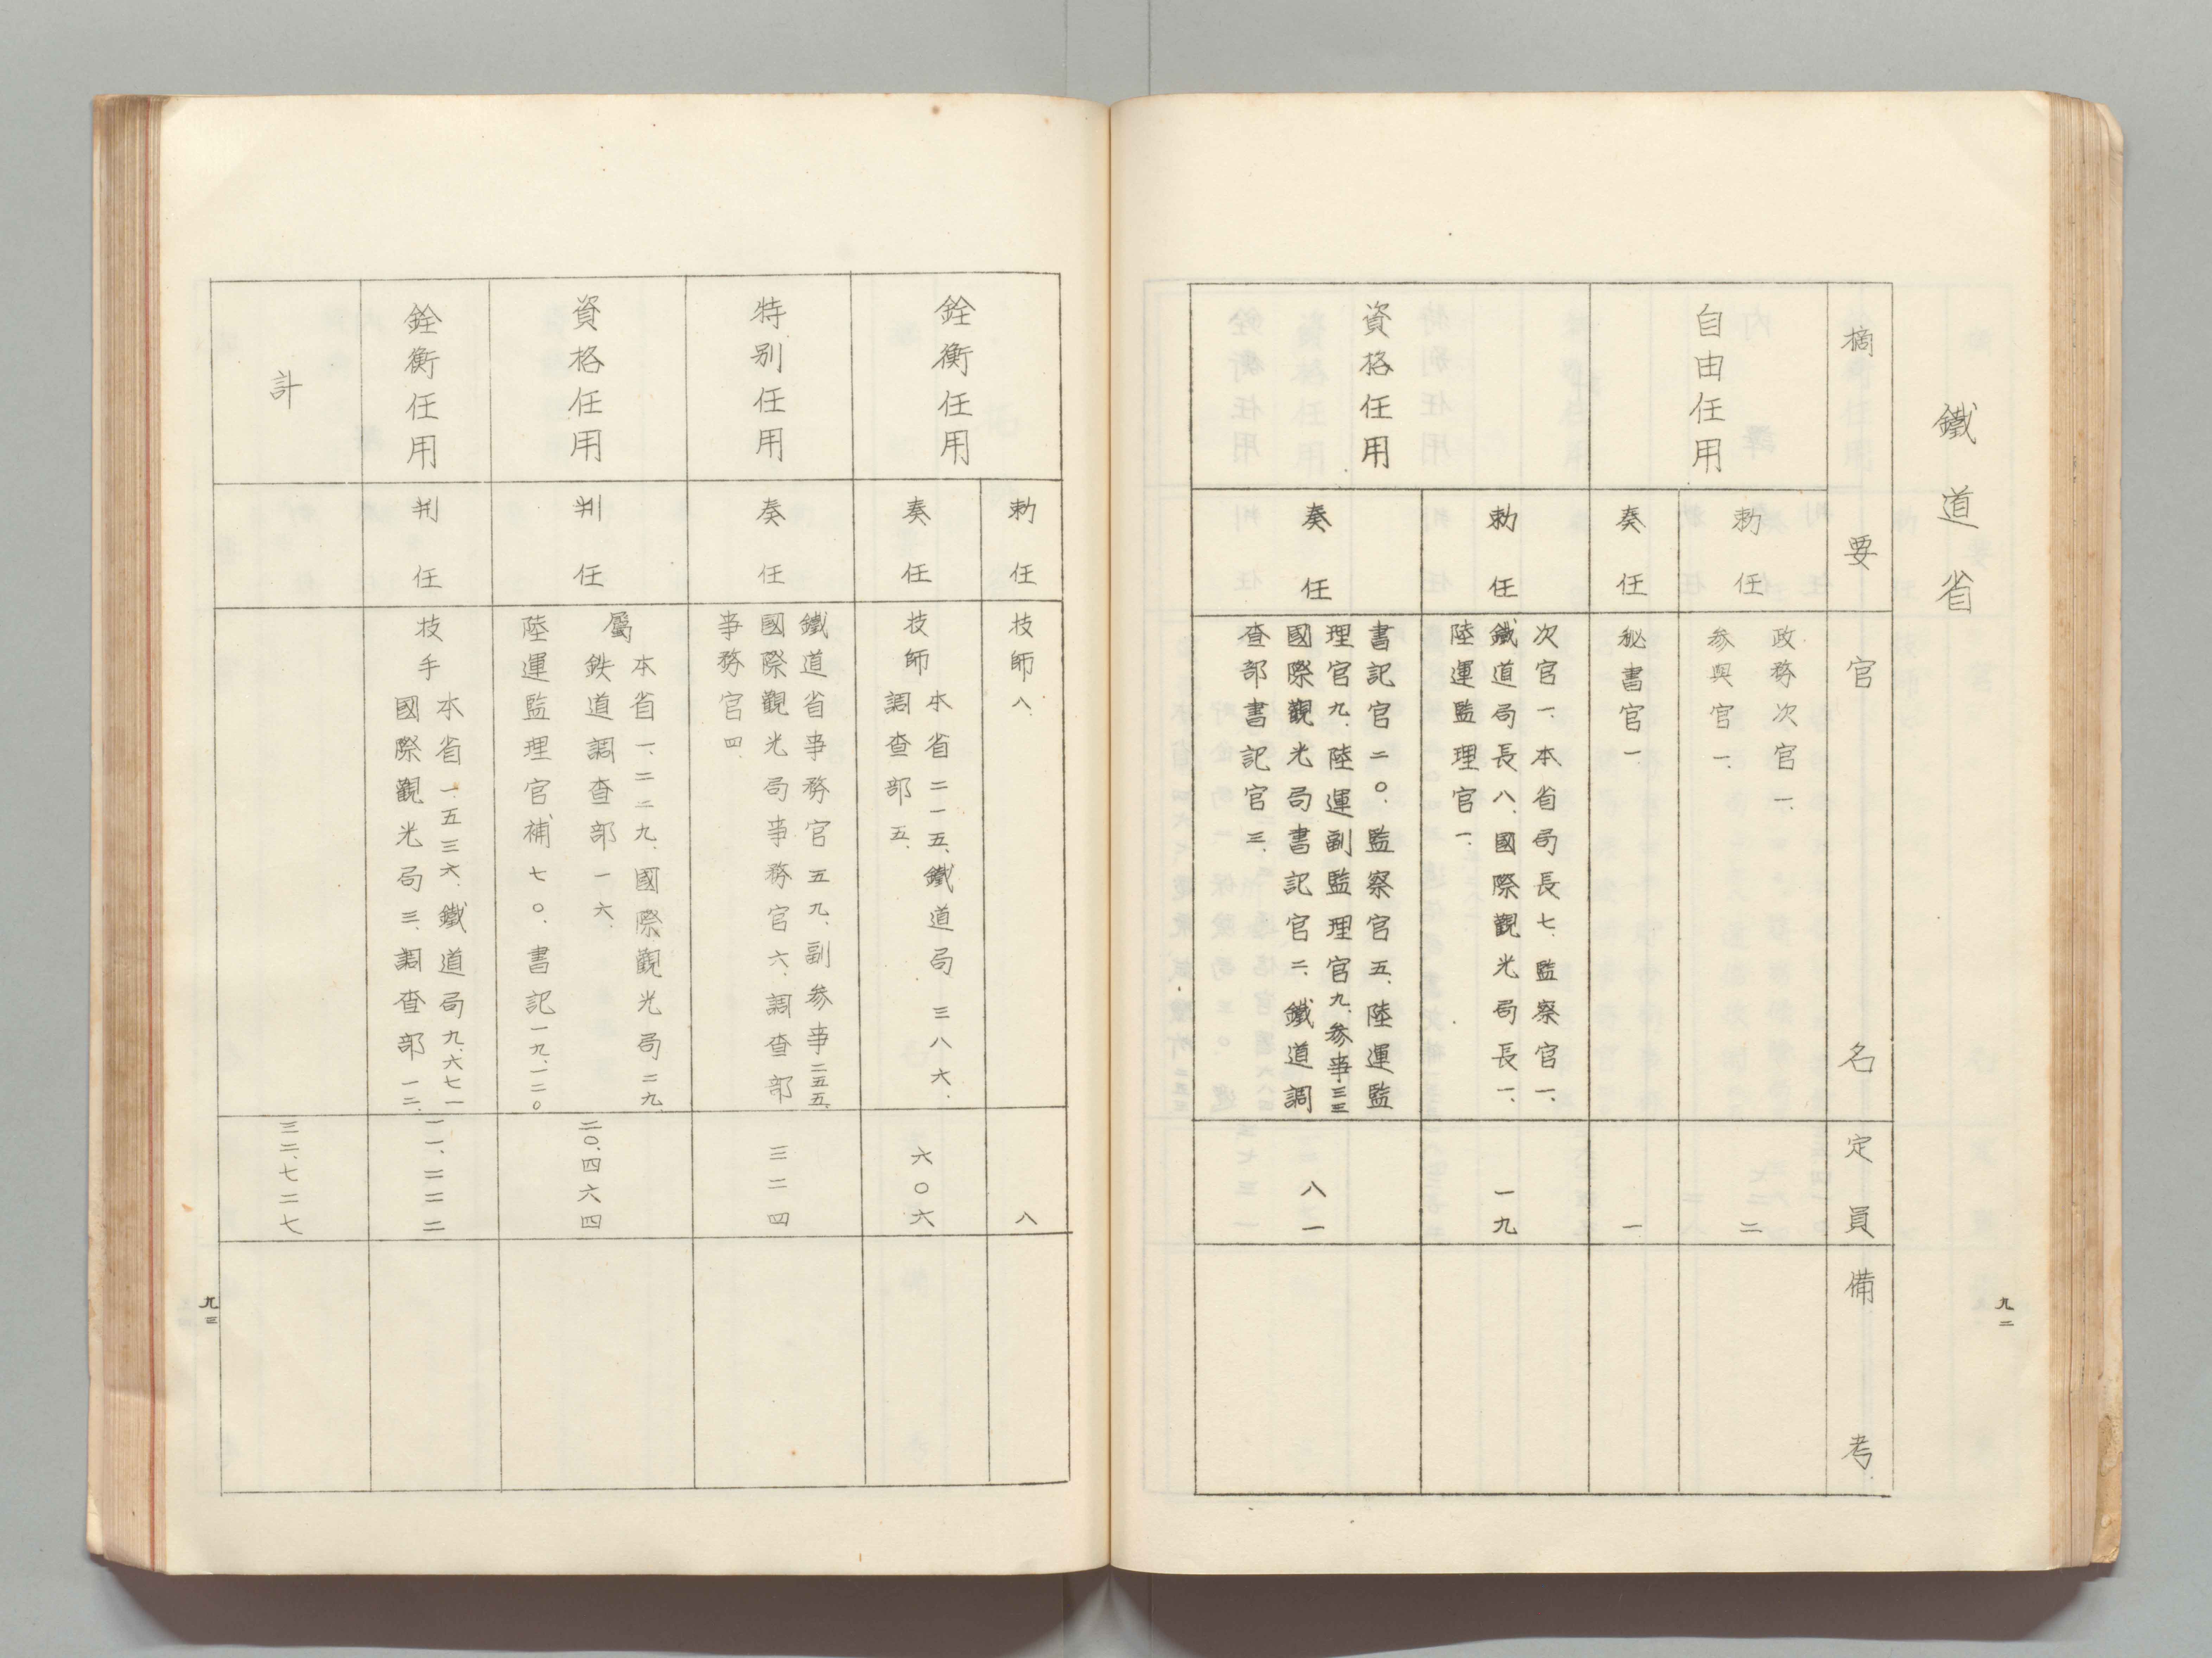 鐵道省
摘要
官名
定員
備考
自由任用
勅任
政務次官一、
参與官一、
二
奏任
秘書官一、
一
資格任用
勅任
次官一、本省局長七、監察官一、
鐵道局長八、國際觀光局長一、
陸運監理官一、
一九
奏任
書記官二〇、監察官五、陸運監
理官九、陸運副監理官九、参事三三
國際觀光局書記官二、鐵道調
査部書記官三、
八一
九二
銓衡任用
勅任
技師八、
八
奏任
技師
本省二一五、鐵道局三八六、
調査部五、
六〇六
特別任用
奏任
鐵道省事務官五九、副参事二五五、
國際觀光局事務官六、調査部
事務官四、
三二四
資格任用
判任
屬
本省一、二二九、國際觀光局二九、
鉄道調査部一六、
陸運監理官補七〇、書記一九、一二〇
二〇、四六四
銓衡任用
判任
技手
本省一、五三六、鐵道局九、六七一
國際觀光局三、調査部一二、
一一、二二二
計
三二、七二七
九三